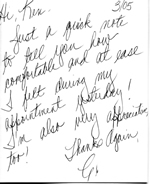 3/05
Hi, Ken.
Just a quick note
to tell you how
comfortable and at ease
I felt during my
appointment yesterday!
I'm also very appreciative,
too!
Thanks again